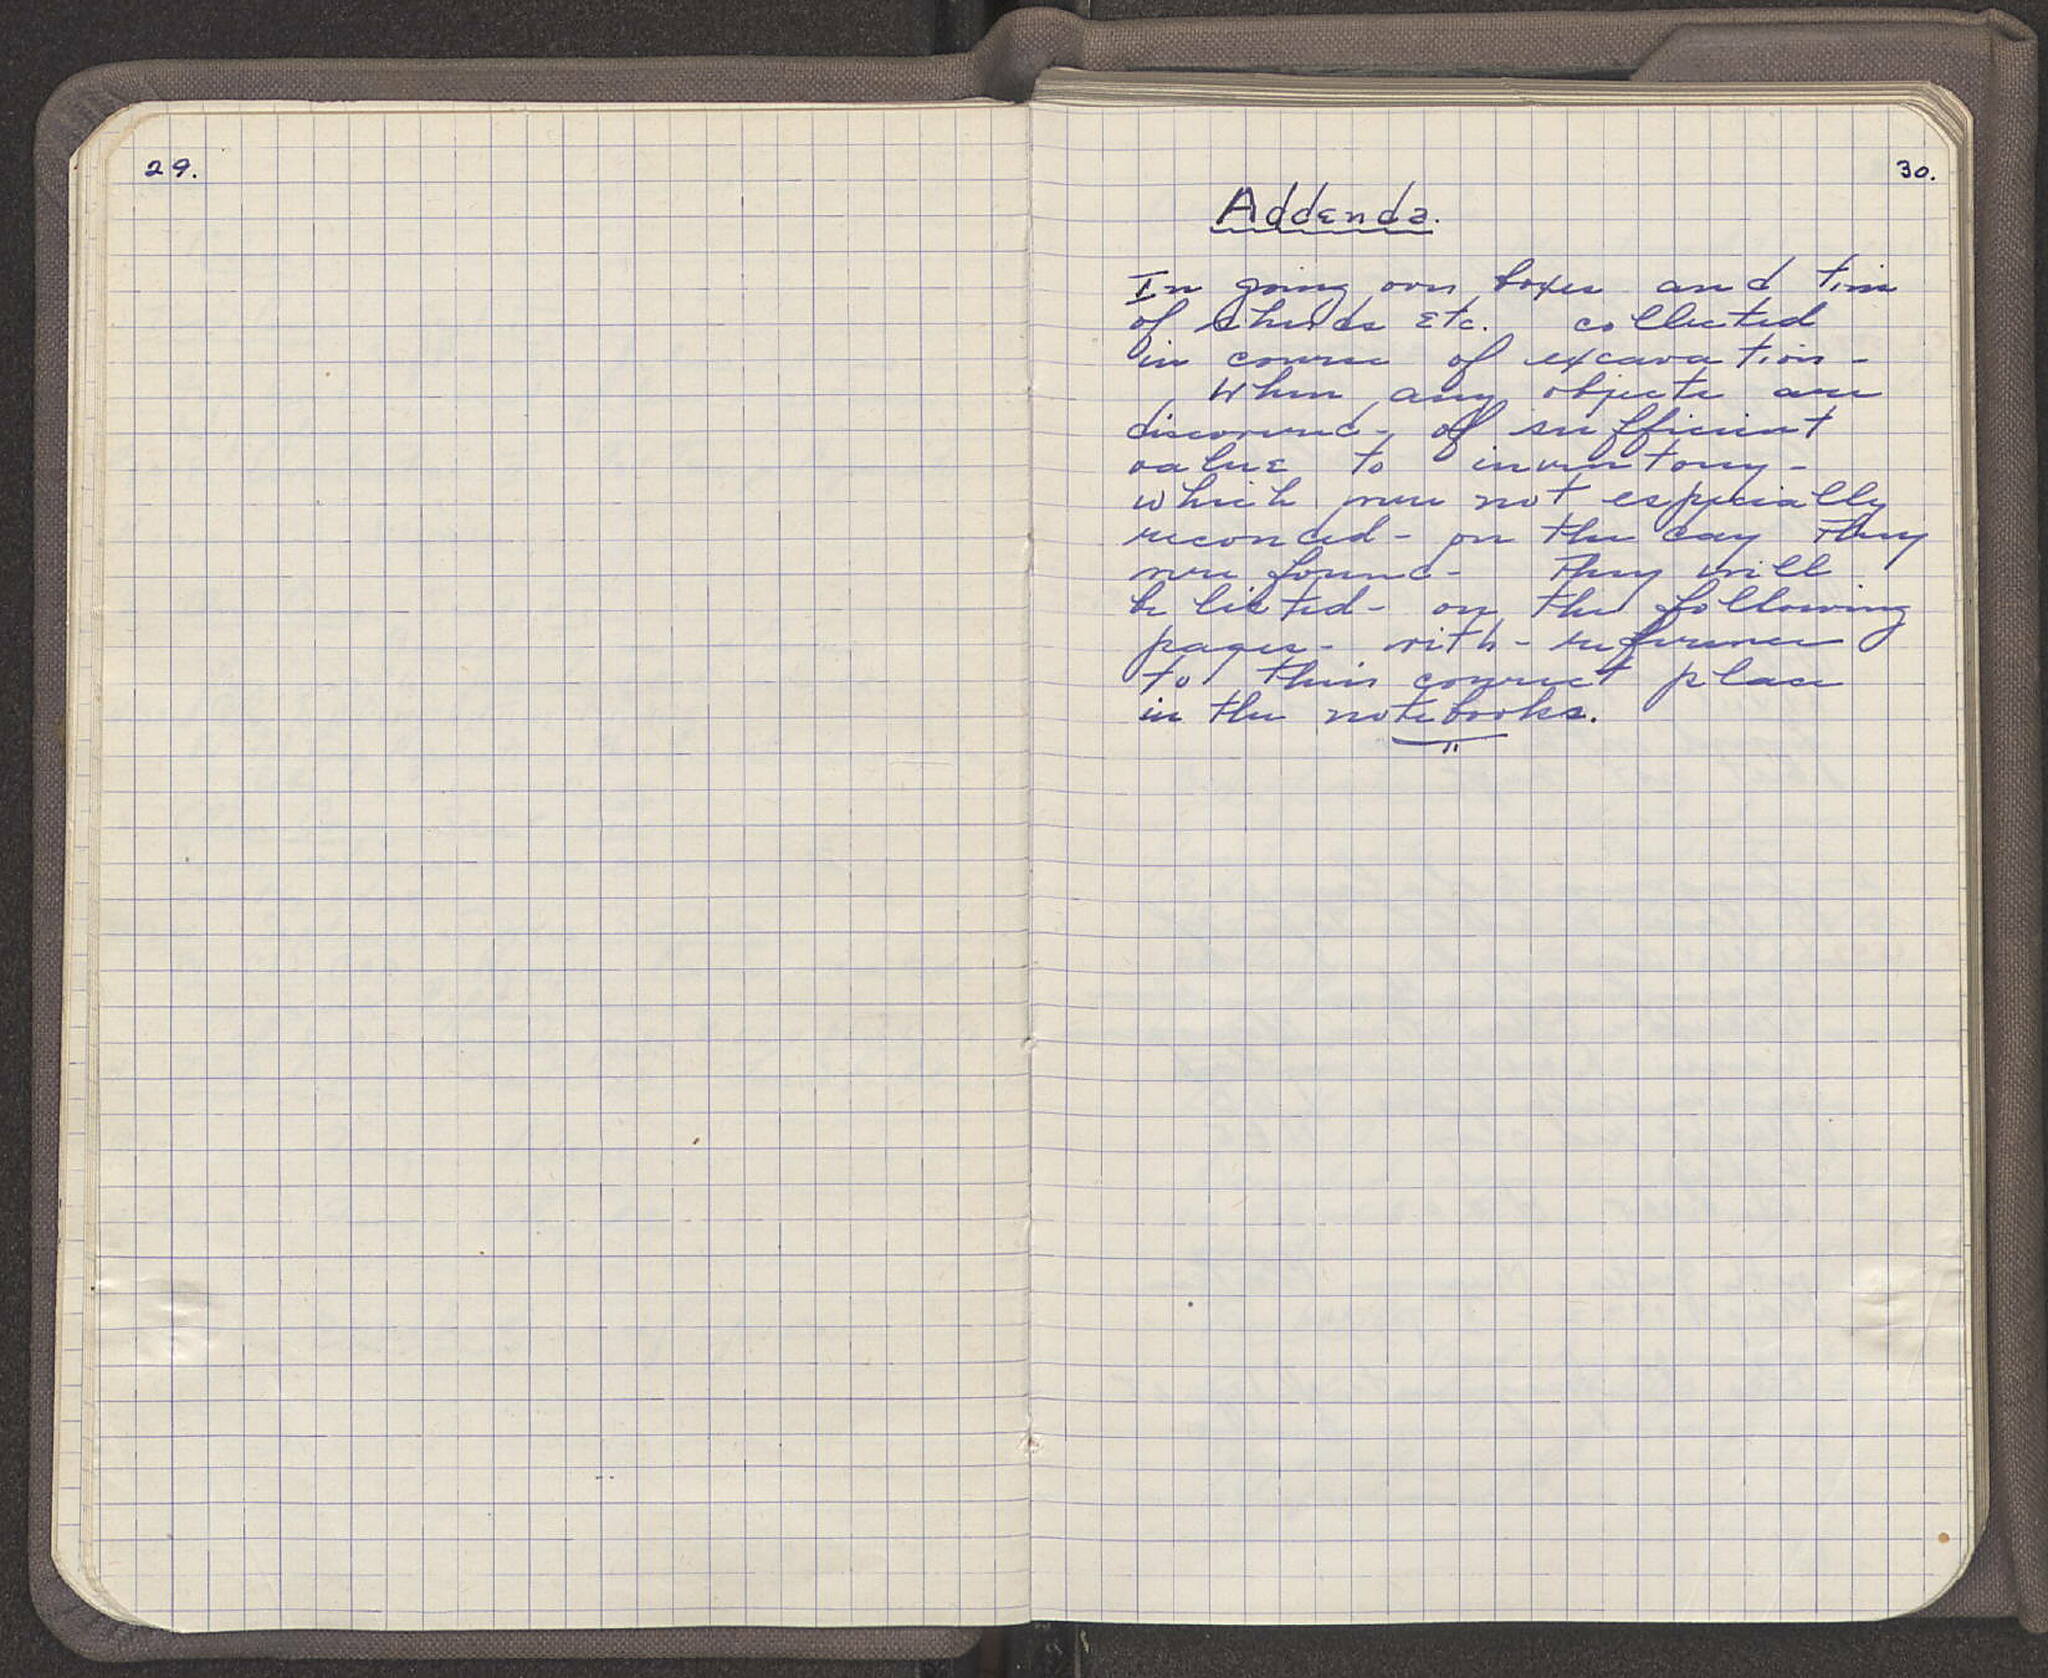 29.
30.
Addenda.
In going over boxes and tins
of sherds Etc. collected
in course of excavation -
When any objects are
discovered - of sufficient
value to inventory -
which were not especially
recorded - on the day they
were found - They will
be listed - on the following
pages - with - reference
to their correct place
in the notebooks.